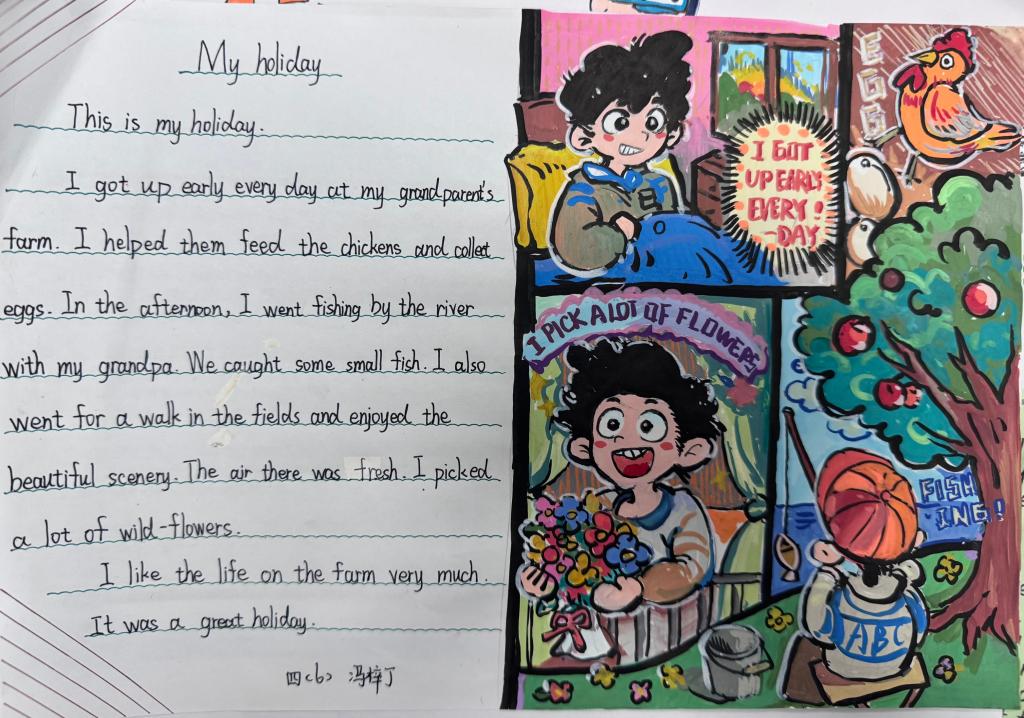 My holiday
This is my holiday.
I got up early every day at my grandparent's
farm. I helped them feed the chickens and collect
eggs. In the afternoon, I went fishing by the river
with my grandpa. We caught some small fish. I also
went for a walk in the fields and enjoyed the
beautiful scenery. The air there was fresh. I picked
a lot of wild-flowers.
I like the life on the farm very much.
It was a great holiday.
四(6) 冯梓丁
I GOT
UP EARLY
EVERY!
-DAY
EGG
I PICK A LOT OF FLOWERS
FISH
ING!
ABC